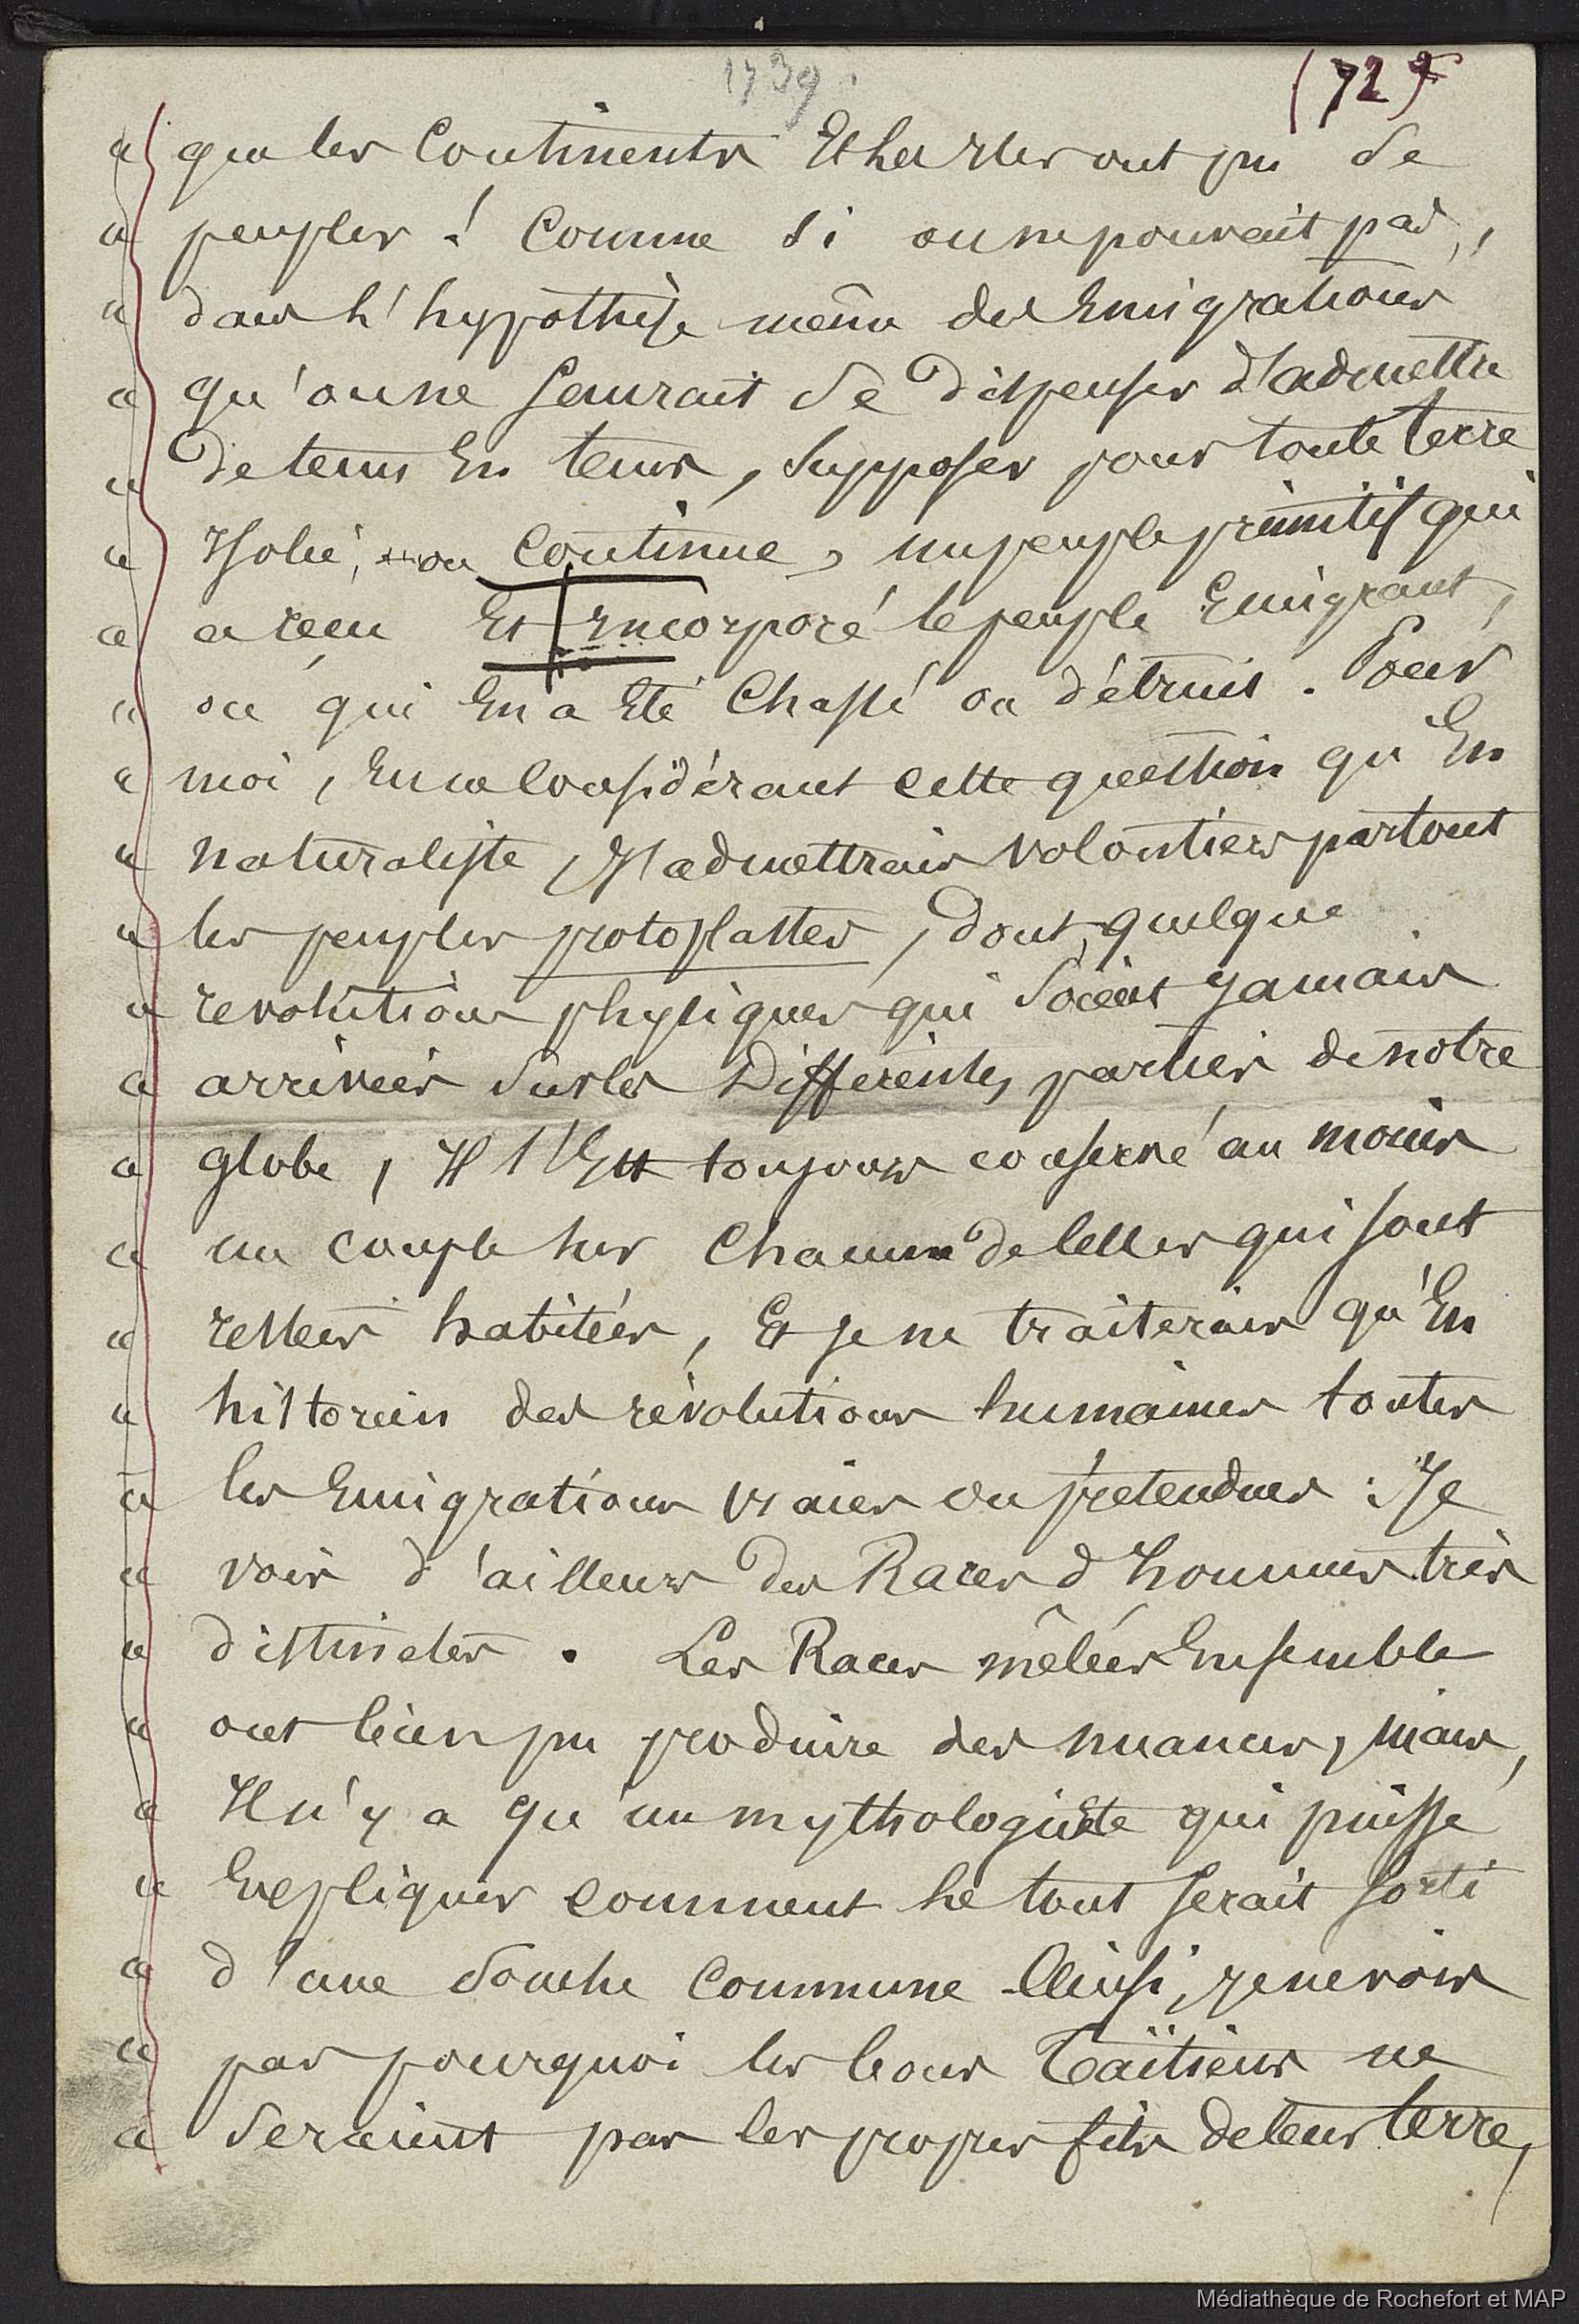 1739.
(727
« que les Continents Et les Isles ont pu se
« peupler ! Comme si on ne pouvait pas,
« dans l'hypothèse même des Emigrations
« qu'on ne saurait se dispenser d'admettre
« de tems En tems, supposer pour toute terre
« Isolée, ou continue, un peuple primitif qui
« a recu Et Incorporé le peuple Emigrant,
« ou qui En a Eté Chassé ou détruit. Pour
« moi, En ne Considérant cette question qu'En
« naturaliste, J'admettrais volontiers partout
« les peuples protoplastes, dont, quelque
« revolutions physiques qui soient Jamais
« arrivées sur les Differentes parties de notre
« globe, Il s'Est toujours conservé au moins
« un couple sur Chacune de celles qui sont
« restées habitées, Et je ne traiterais qu'En
« historien des révolutions humaines toutes
« les Emigrations vraies ou prétendues : Je
« vois d'ailleurs des Races d'hommes très
« distinctes. Les Races mêlées Ensemble
« ont bien pu produire des nuances, mais,
« Il n'y a qu'un mythologiste qui puisse
« Expliquer comment le tout serait sorti
« d'une souche Commune Ainsi, je ne vois
« pas pourquoi les bons Taïtiens ne
« seraient pas les propres fils de leur terre,
Médiathèque de Rochefort et MAP